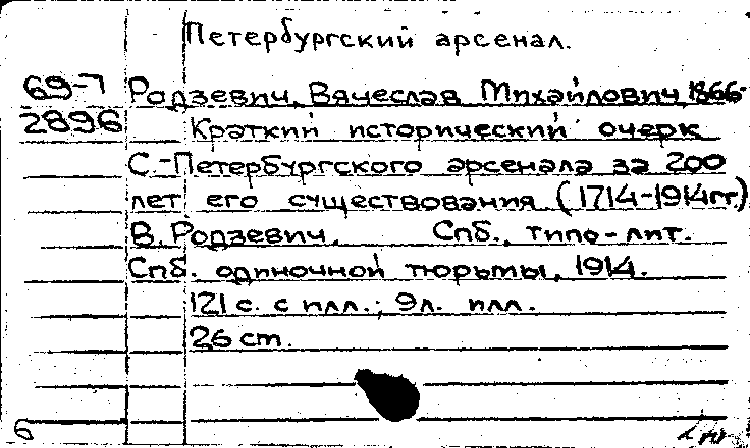 Петербургский арсенал.
69-7 Родзевич, Вячеслав Михайлович, 1866-
2896 Краткий исторический очерк
С.-Петербургского арсенала за 200
лет его существования (1714-1914гг)
В. Родзевич. Спб., типо-лит.
Спб. одиночной тюрьмы, 1914.
121 с. с илл.; 9л. илл.
26 см.
6